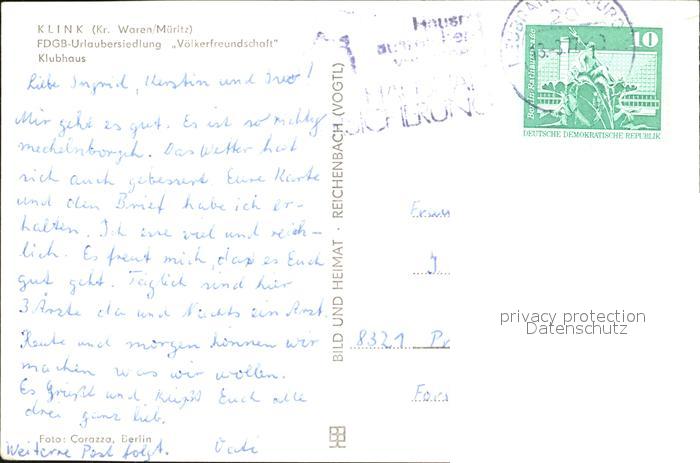 KLINK (Kr. Waren/Müritz)
FDGB-Urlaubersiedlung „Völkerfreundschaft"
Klubhaus
Liebe Ingrid, Kerstin und Ines!
Mir geht es gut. Es ist so richtig
Das Wetter hat
sich auch gebessert. Eure Karte
und den Brief habe ich er-
halten. Ich esse viel und reich-
lich. Es freut mich, daß es Euch
gut geht. Täglich sind hier
3 Ärzte da und Nachts ein Arzt.
Heute und morgen können wir
machen was wir wollen.
Es Grüßt und Küßt Euch alle
drei ganz lieb.
Foto: Corazza, Berlin
Weitere Post folgt. Vati
BILD UND HEIMAT · REICHENBACH (VOGTL)
10
Berlin, Rathausstraße
DEUTSCHE DEMOKRATISCHE REPUBLIK
Frau
J
8321 Pr
privacy protection
Datenschutz